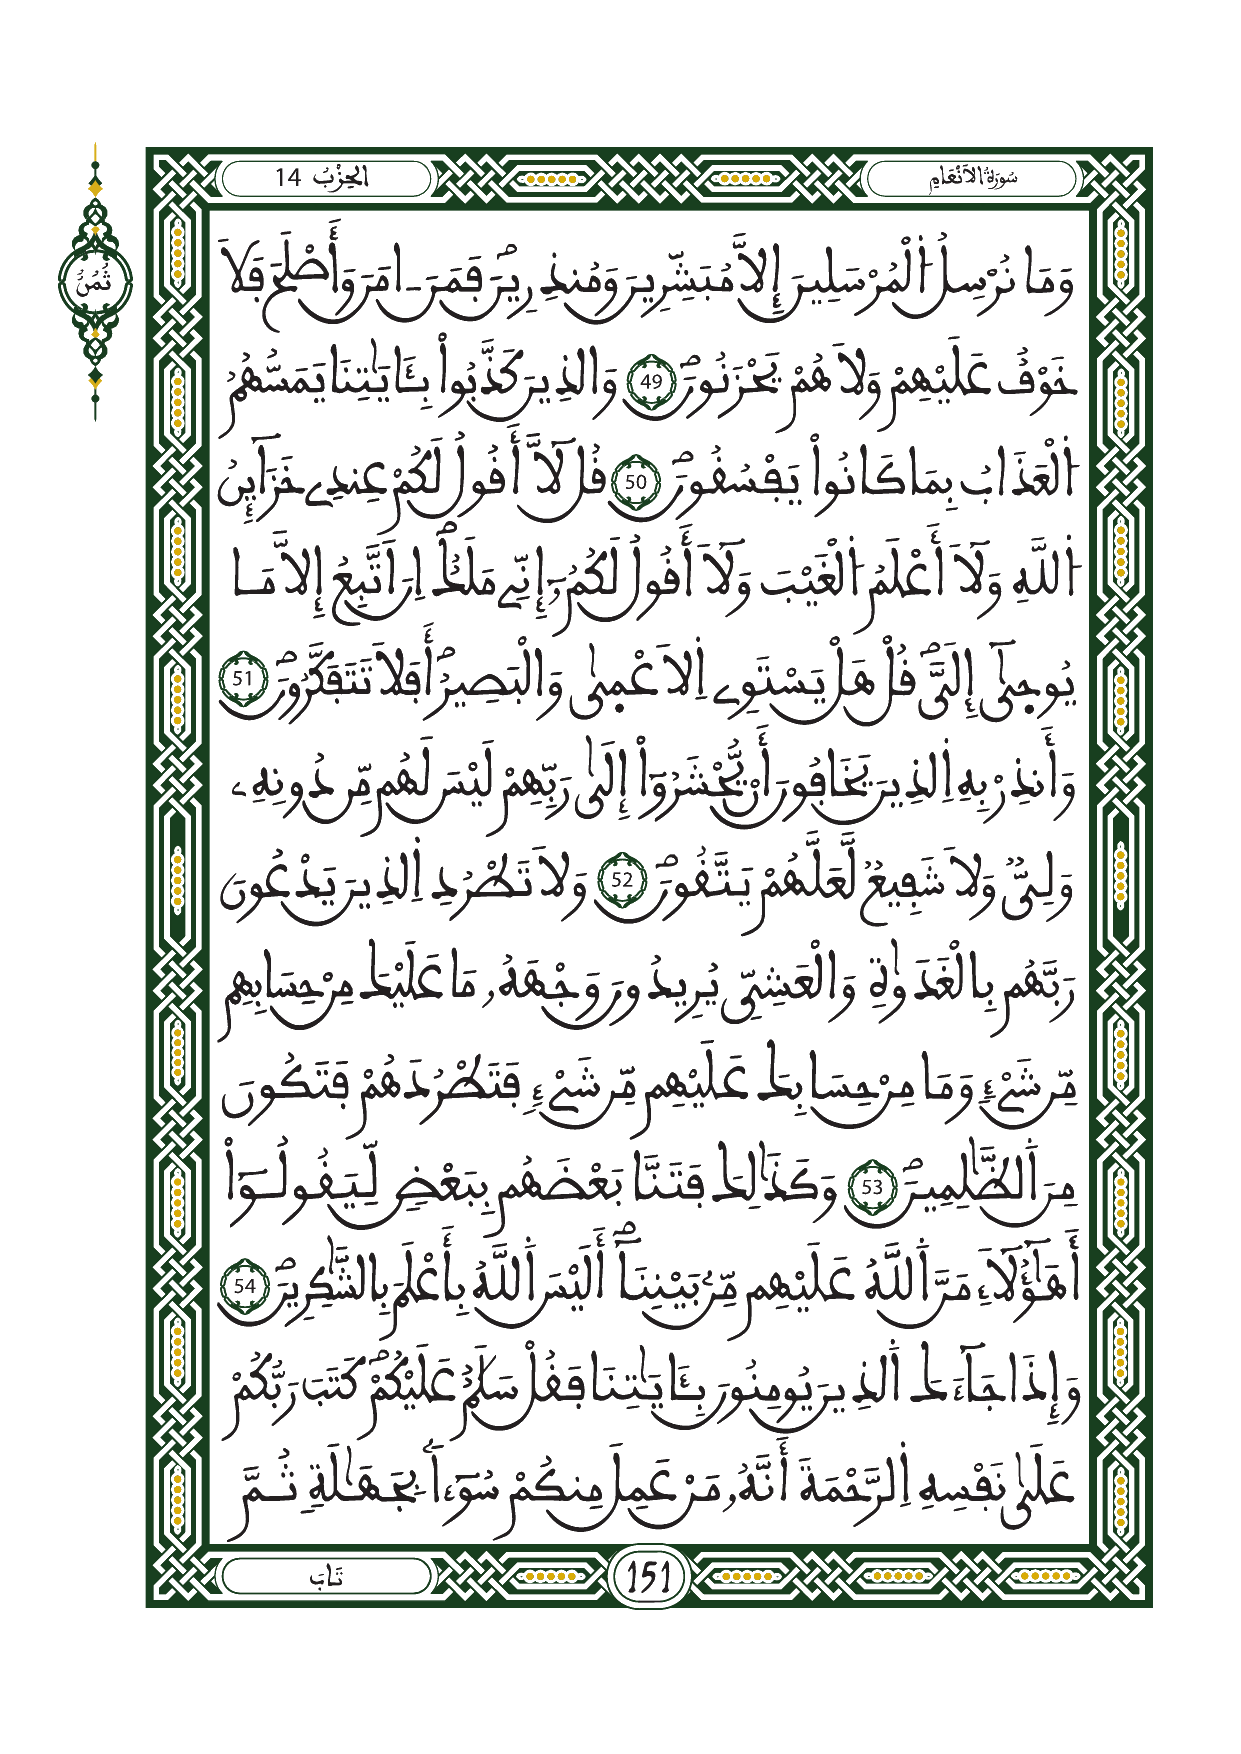 سُورَةُ الاَنْعَامِ
الحِزْبُ 14
ثُمُنُ
وَمَا نُرْسِلُ اُ۬لْمُرْسَلِينَ إِلَّا مُبَشِّرِينَ وَمُنذِرِينَۖ فَمَنَ اٰمَنَ وَأَصْلَحَ فَلَا
خَوْفٌ عَلَيْهِمْ وَلَا هُمْ يَحْزَنُونَۖ 49 وَالذِينَ كَذَّبُواْ بِـَٔايَٰتِنَا يَمَسُّهُمُ
اُ۬لْعَذَابُ بِمَا كَانُواْ يَفْسُقُونَۖ 50 قُل لَّآ أَقُولُ لَكُمْ عِندِے خَزَآئِنُ
اُ۬للَّهِ وَلَآ أَعْلَمُ اُ۬لْغَيْبَ وَلَآ أَقُولُ لَكُمُۥٓ إِنِّے مَلَكٌۖ اِنَ اَتَّبِعُ إِلَّا مَا
يُوح۪يٰٓ إِلَيَّۖ قُلْ هَلْ يَسْتَوِے اِ۬لَاعْم۪يٰ وَالْبَصِيرُۖ أَفَلَا تَتَفَكَّرُونَۖ 51
وَأَنذِرْ بِهِ اِ۬لذِينَ يَخَافُونَ أَنْ يُّحْشَرُوٓاْ إِلَيٰ رَبِّهِمْ لَيْسَ لَهُم مِّن دُونِهِۦ
وَلِيٌّ وَلَا شَفِيعٌ لَّعَلَّهُمْ يَتَّقُونَۖ 52 وَلَا تَطْرُدِ اِ۬لذِينَ يَدْعُونَ
رَبَّهُم بِالْغَدَوٰةِ وَالْعَشِيِّ يُرِيدُونَ وَجْهَهُۥ مَا عَلَيْكَ مِنْ حِسَابِهِم
مِّن شَےْءٖ وَمَا مِنْ حِسَابِكَ عَلَيْهِم مِّن شَےْءٖ فَتَطْرُدَهُمْ فَتَكُونَ
مِنَ اَ۬لظَّٰلِمِينَۖ 53 وَكَذَٰلِكَ فَتَنَّا بَعْضَهُم بِبَعْضٖ لِّيَقُولُوٓاْ
أَهَٰٓؤُلَآءِ مَنَّ اَ۬للَّهُ عَلَيْهِم مِّنۢ بَيْنِنَآۖ أَلَيْسَ اَ۬للَّهُ بِأَعْلَمَ بِالشَّٰكِرِينَۖ 54
وَإِذَا جَآءَكَ اَ۬لذِينَ يُومِنُونَ بِـَٔايَٰتِنَا فَقُلْ سَلَٰمٌ عَلَيْكُمْۖ كَتَبَ رَبُّكُمْ
عَلَيٰ نَفْسِهِ اِ۬لرَّحْمَةَ أَنَّهُۥ مَنْ عَمِلَ مِنكُمْ سُوٓءاَۢ بِجَهَٰلَةٖ ثُمَّ
تَابَ
151